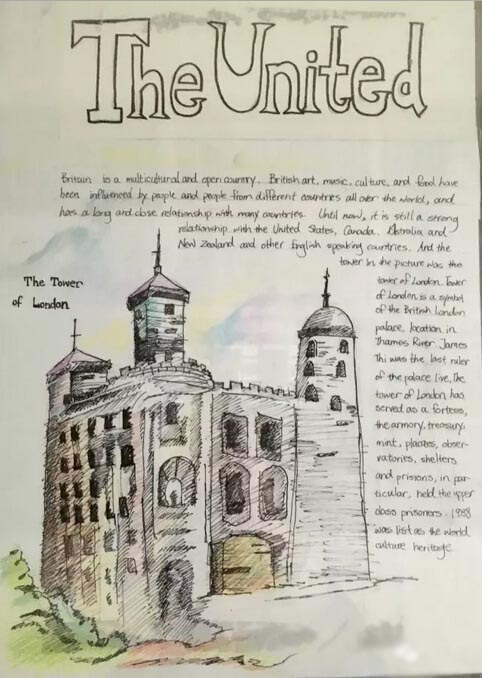 The United
Britain is a multicultural and open country. British art, music, culture, and food have
been influenced by people and people from different countries all over the world, and
has a long and close relationship with many countries. Until now, it is still a strong
relationship with the United States, Canada, Australia, and
New Zealand and other English speaking countries. And the
tower in the picture was the
The Tower
of London
tower of London. Tower
of London is a symbol
of the British London
palace, location in
Thames River. James
Thi was the last ruler
of the palace live. The
tower of London has
served as a fortess,
the armory, treasury,
mint, places, obser-
vatories, shelters
and prisions, in par-
ticular, held the upper
class prisoners. 1988
was list as the world
culture heritage